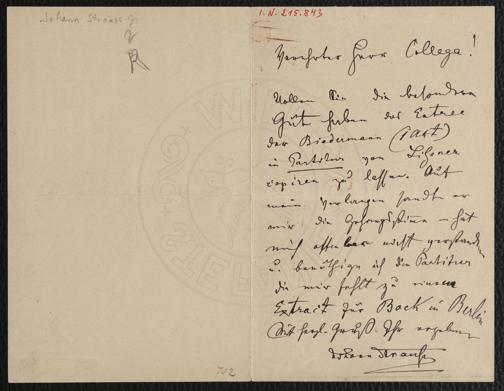 Johann Strauss jr
I. N. 215.843
Verehrter Herr Collega!
Wollen Sie die besondere
Güte haben das Entree
der Biedermann
in Partitur von
copiren zu lassen. Auf
mein Verlangen sandte er
mir die Gesangsstimme – hat
mich offenbar nicht verstanden
u. benöthige ich die Partitur
die mir fehlt zu einem
Extract für Bock in Berlin
Mit herzl. Gruß Ihr ergebener
Johann Strauss
702